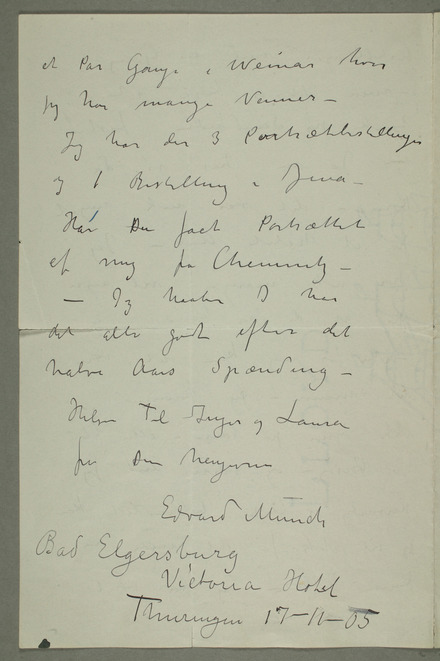 et Par Gange i Weimar hvor
jeg har mange Venner –
Jeg har der 3 Portrætbestillinger
og 1 Bestilling i Jena –
Har Du faaet Portrættet
af mig fra Chemnitz –
– Jeg haaber I har
det alle godt efter det
halve Aars Spænding –
Hilsen til Inger og Laura
fra Din hengivne
Edvard Munch
Bad Elgersburg
Victoria Hotel
Thüringen 17–11–05